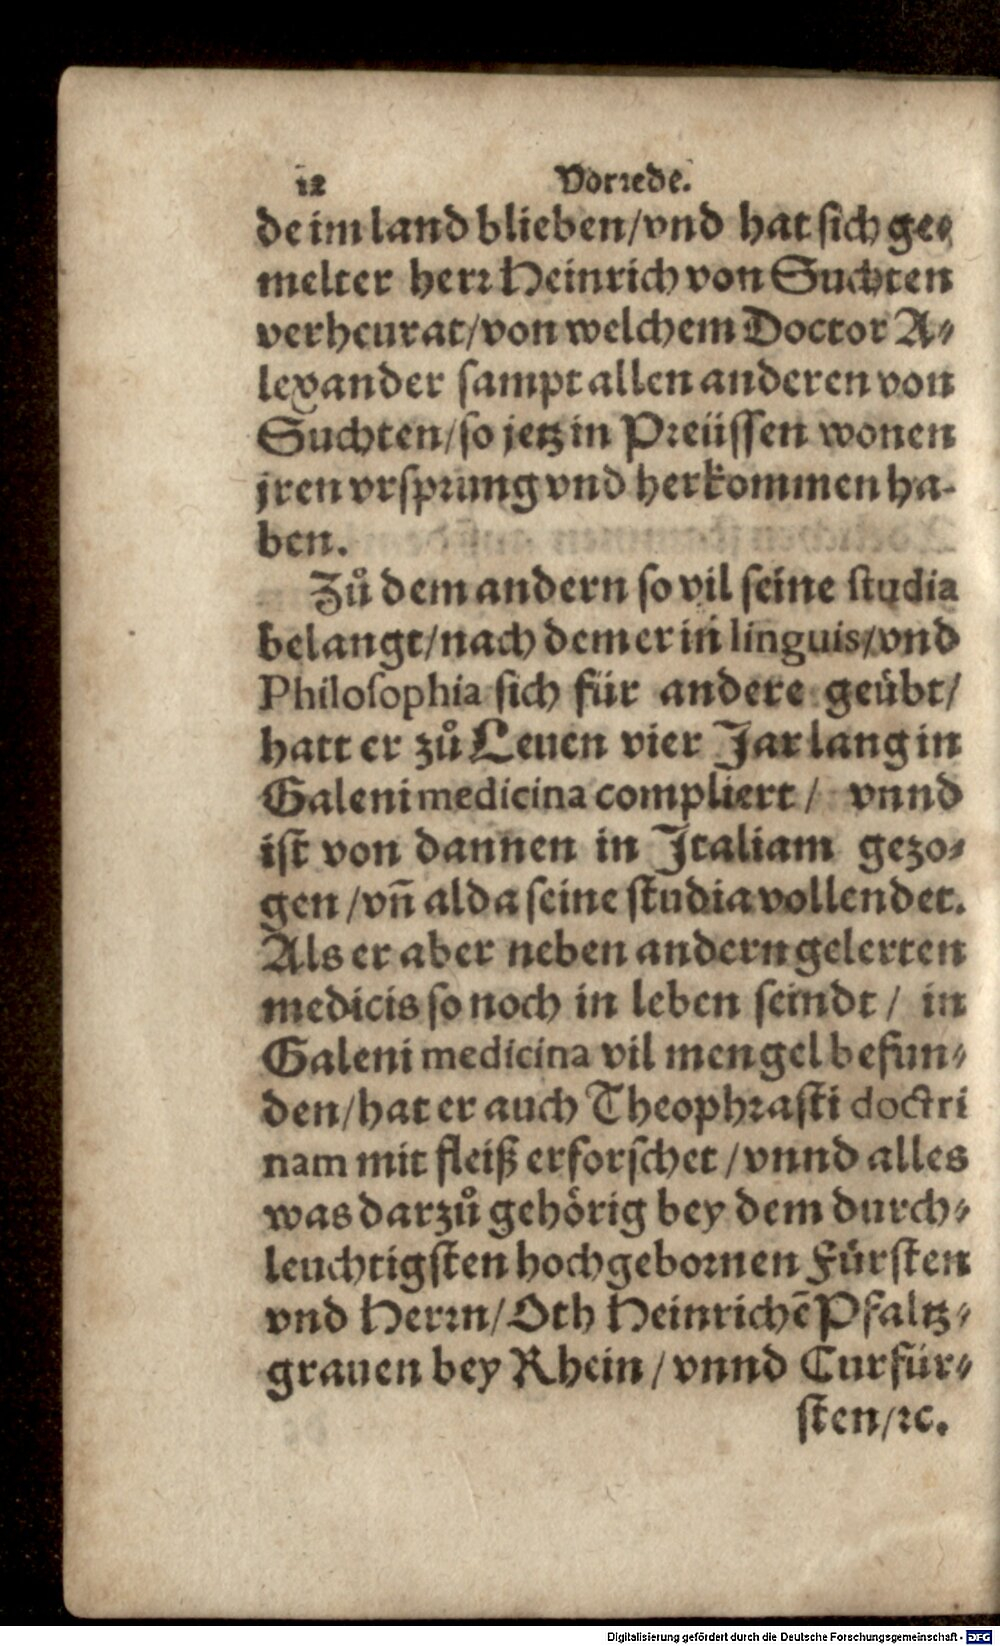 12 Vorrede.
de im land blieben/vnd hat sich ge⸗
melter herr Heinrich von Suchten
verheurat/von welchem Doctor A⸗
lexander sampt allen anderen von
Suchten/so jetz in Preüssen wonen
jren vrsprung vnd herkommen ha-
ben.
Zů dem andern so vil seine studia
belangt/nach dem er in linguis/vnd
Philosophia sich für andere geübt/
hatt er zů Leuen vier Jar lang in
Galeni medicina compliert/ vnnd
ist von dannen in Italiam gezo⸗
gen/vn̄ alda seine studia vollendet.
Als er aber neben andern gelerten
medicis so noch in leben seindt/ in
Galeni medicina vil mengel befun⸗
den/hat er auch Theophrasti doctri
nam mit fleiß erforschet/vnnd alles
was darzů gehörig bey dem durch⸗
leuchtigsten hochgebornen Fürsten
vnd Herrn/Oth Heinrichē Pfaltz⸗
grauen bey Rhein/vnnd Curfür⸗
sten/ꝛc.
Digitalisierung gefördert durch die Deutsche Forschungsgemeinschaft - DFG